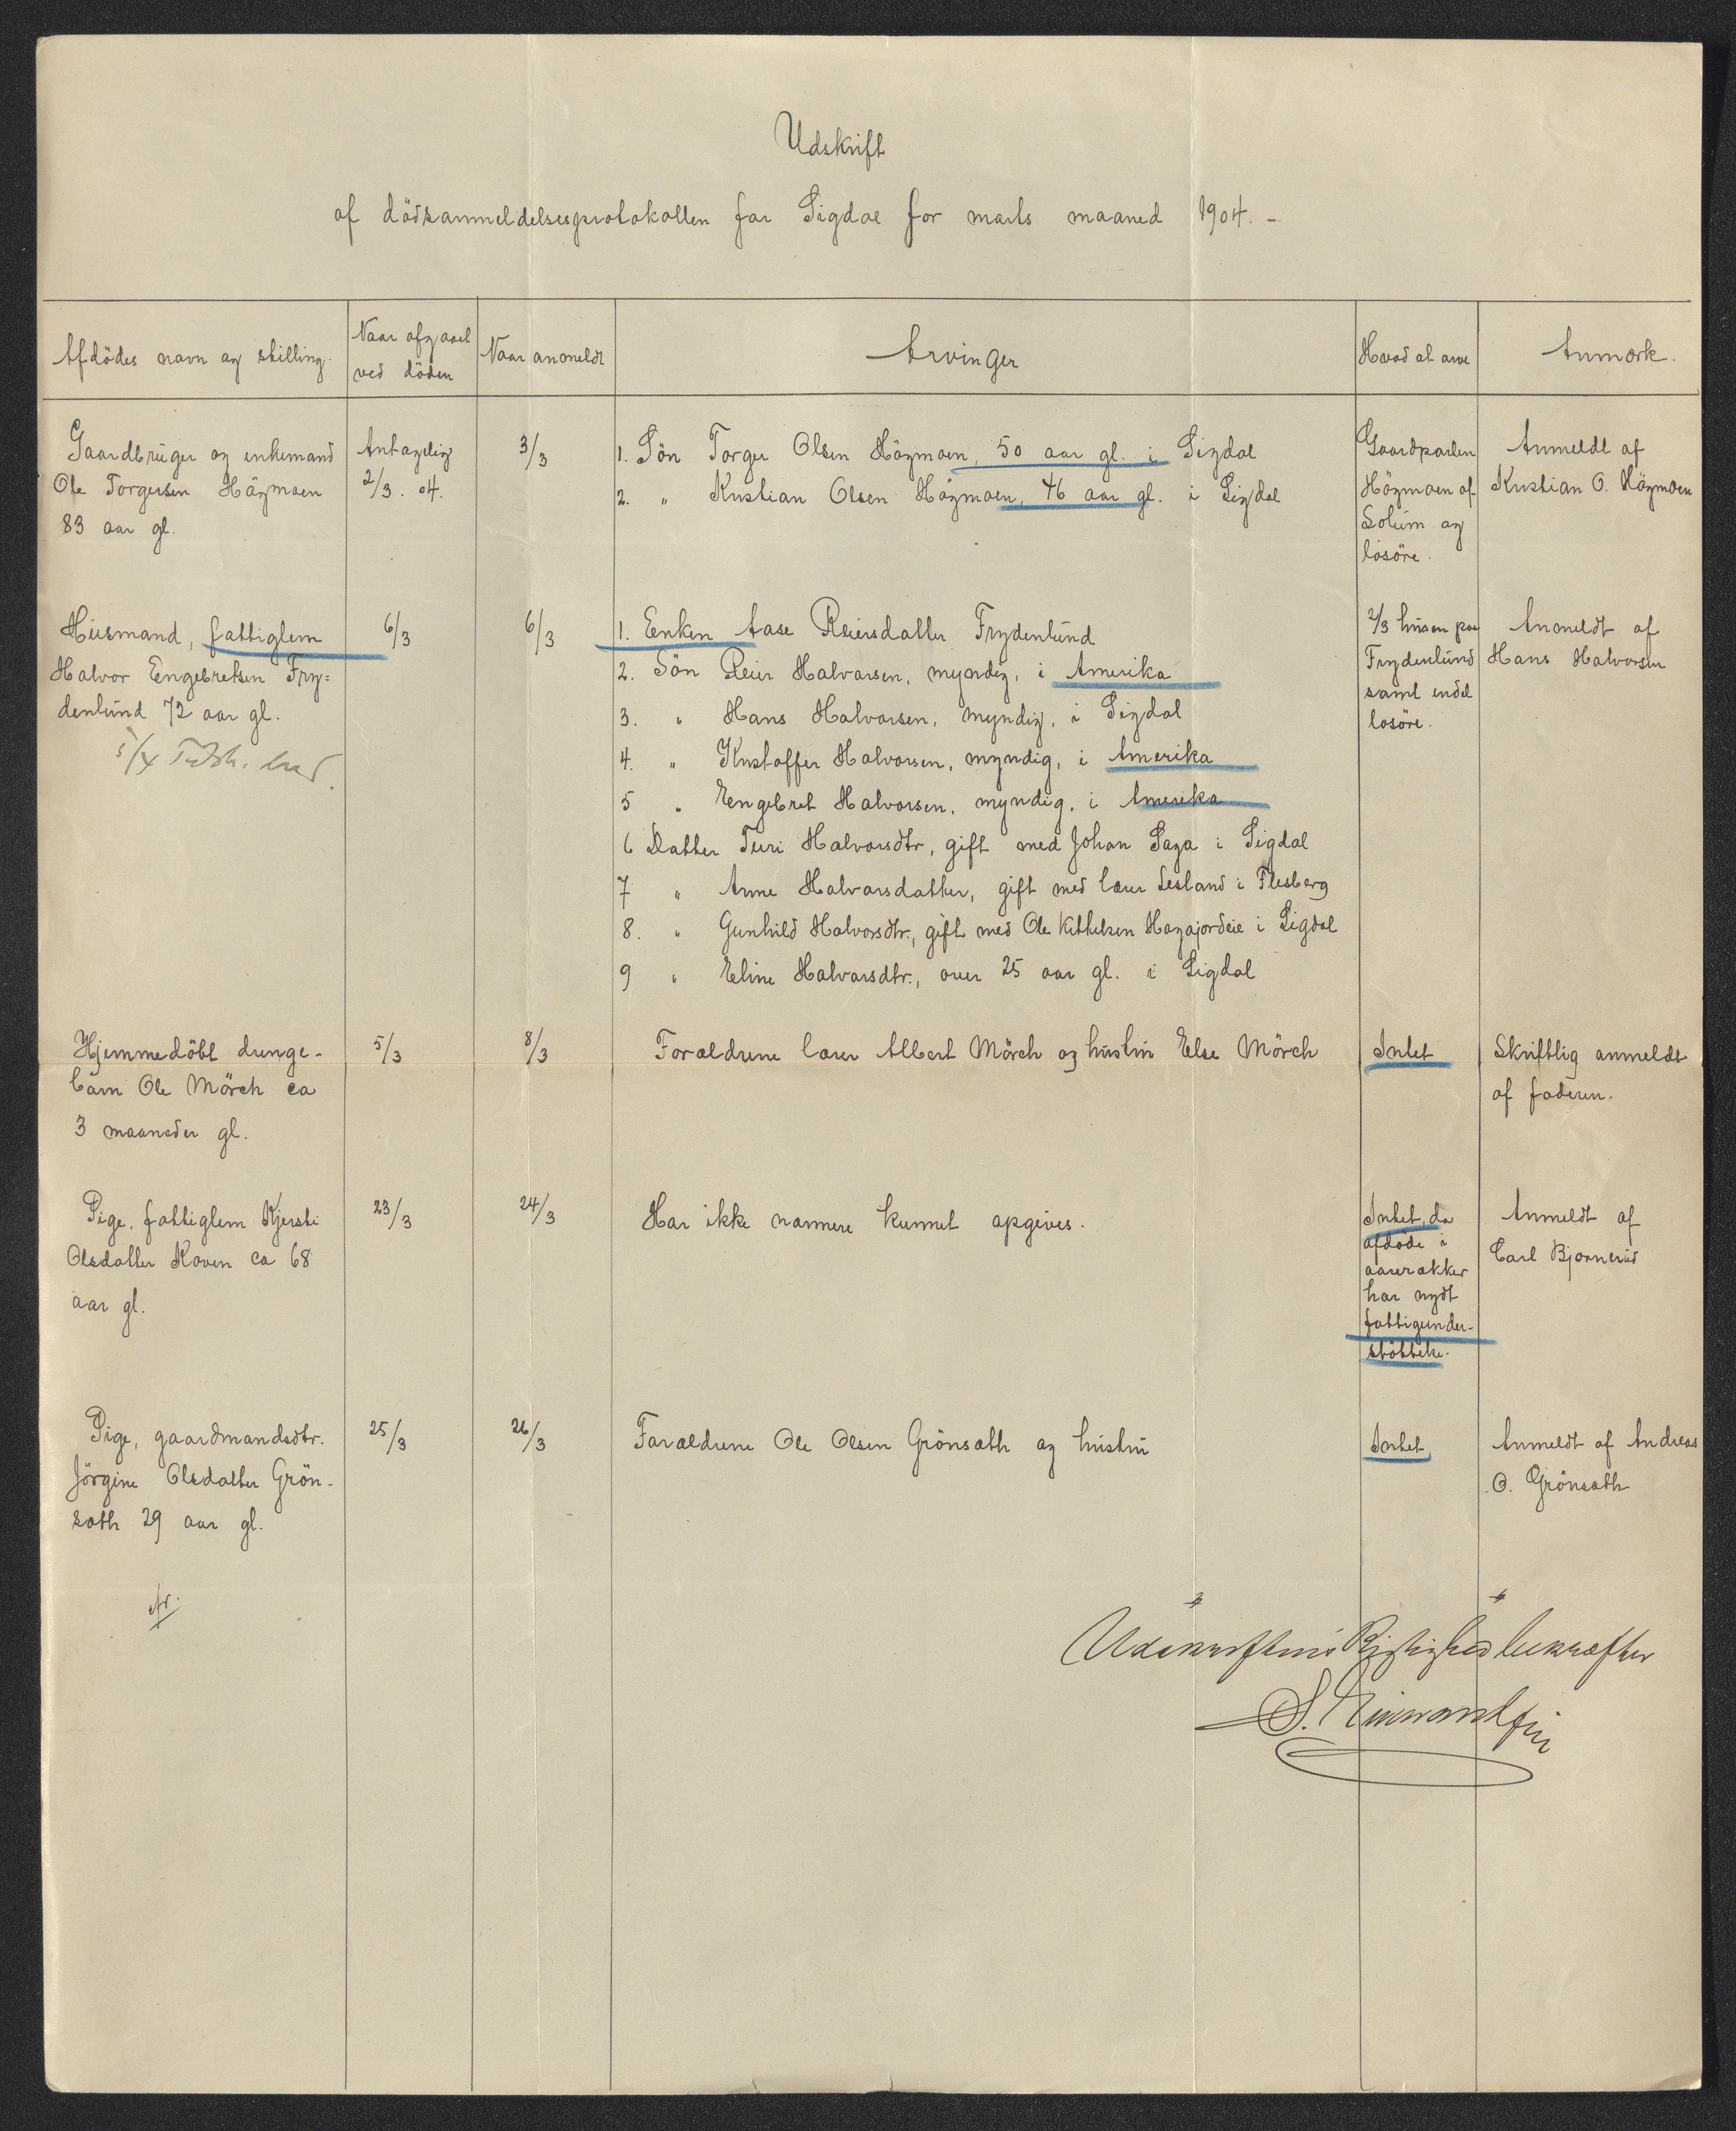 Udskrift
af dödsanmeldelsesprotokollen for Sigdal for marts maaned 1904. -
Afdödes navn og stilling.
Naar afgaaet
ved döden
Naar anmeldt
Arvinger
Hvad at arve
Anmærk.
Gaardbruger og enkemand
Ole Torgersen Högmoen
83 aar gl.
Antagelig
2/3. 04.
3/3
1. Sön Torger Olsen Högmoen, 50 aar gl. i Sigdal
2. " Kristian Olsen Högmoen, 46 aar gl. i Sigdal
Gaardparten
Högmoen af
Solum og
lösöre.
Anmeldt af
Kristian O. Högmoen
Husmand, fattiglem
Halvor Engebretsen Fry=
denlund 72 aar gl.
5/4
6/3
6/3
1. Enken Aase Reiersdatter Frydenlund
2. Sön Reier Halvorsen, myndig, i Amerika
3. " Hans Halvorsen, myndig, i Sigdal
4. " Kristoffer Halvorsen, myndig, i Amerika
5 " Engebret Halvorsen, myndig, i Amerika
6 Datter Turi Halvorsdtr, gift med Johan Saga i Sigdal
7 " Anne Halvorsdatter, gift med lærer Lesland i Flesberg
8. " Gunhild Halvorsdtr., gift med Ole Kittelsen Hagajordeie i Sigdal
9 " Eline Halvorsdtr., over 25 aar gl. i Sigdal
2/3 husen paa
Frydenlund
samt endel
lösöre.
Anmeldt af
Hans Halvorsen
Hjemmedöbt drenge-
barn Ole Mörch ca
3 maaneder gl.
5/3
8/3
Forældrene lærer Albert Mörch og hustru Else Mörch
Intet
Skriftlig anmeldt
af faderen.
Pige, fattiglem Kjersti
Olsdatter Koven ca 68
aar gl.
23/3
24/3
Har ikke nærmere kunnet opgives.
Intet, da
afdöde i
aarrækker
har nydt
fattigunder-
stöttelse.
Anmeldt af
Carl Bjørnerud
Pige, gaardmandsdtr.
Jörgine Olsdatter Grön-
sæth 29 aar gl.
25/3
26/3
Forældrene Ole Olsen Grönsæth og hustru
Intet
Anmeldt af Andreas
O. Grönsæth
Udskriftens Rigtighed bekræfter